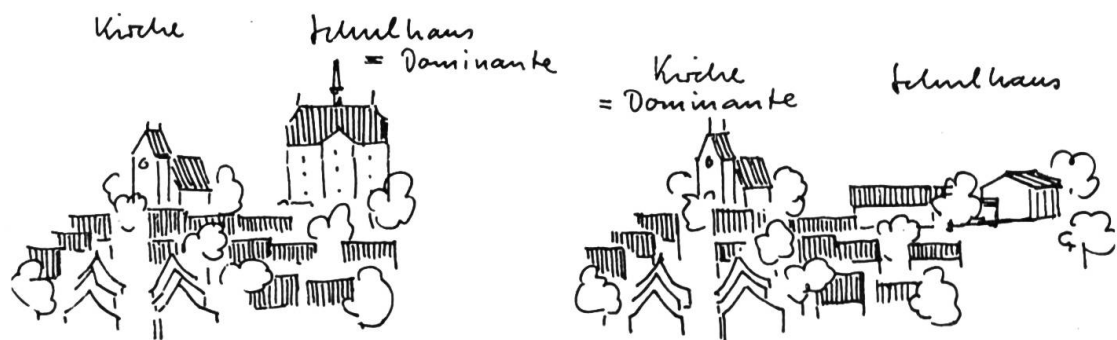 Kirche
Schulhaus
= Dominante
Kirche
= Dominante
Schulhaus